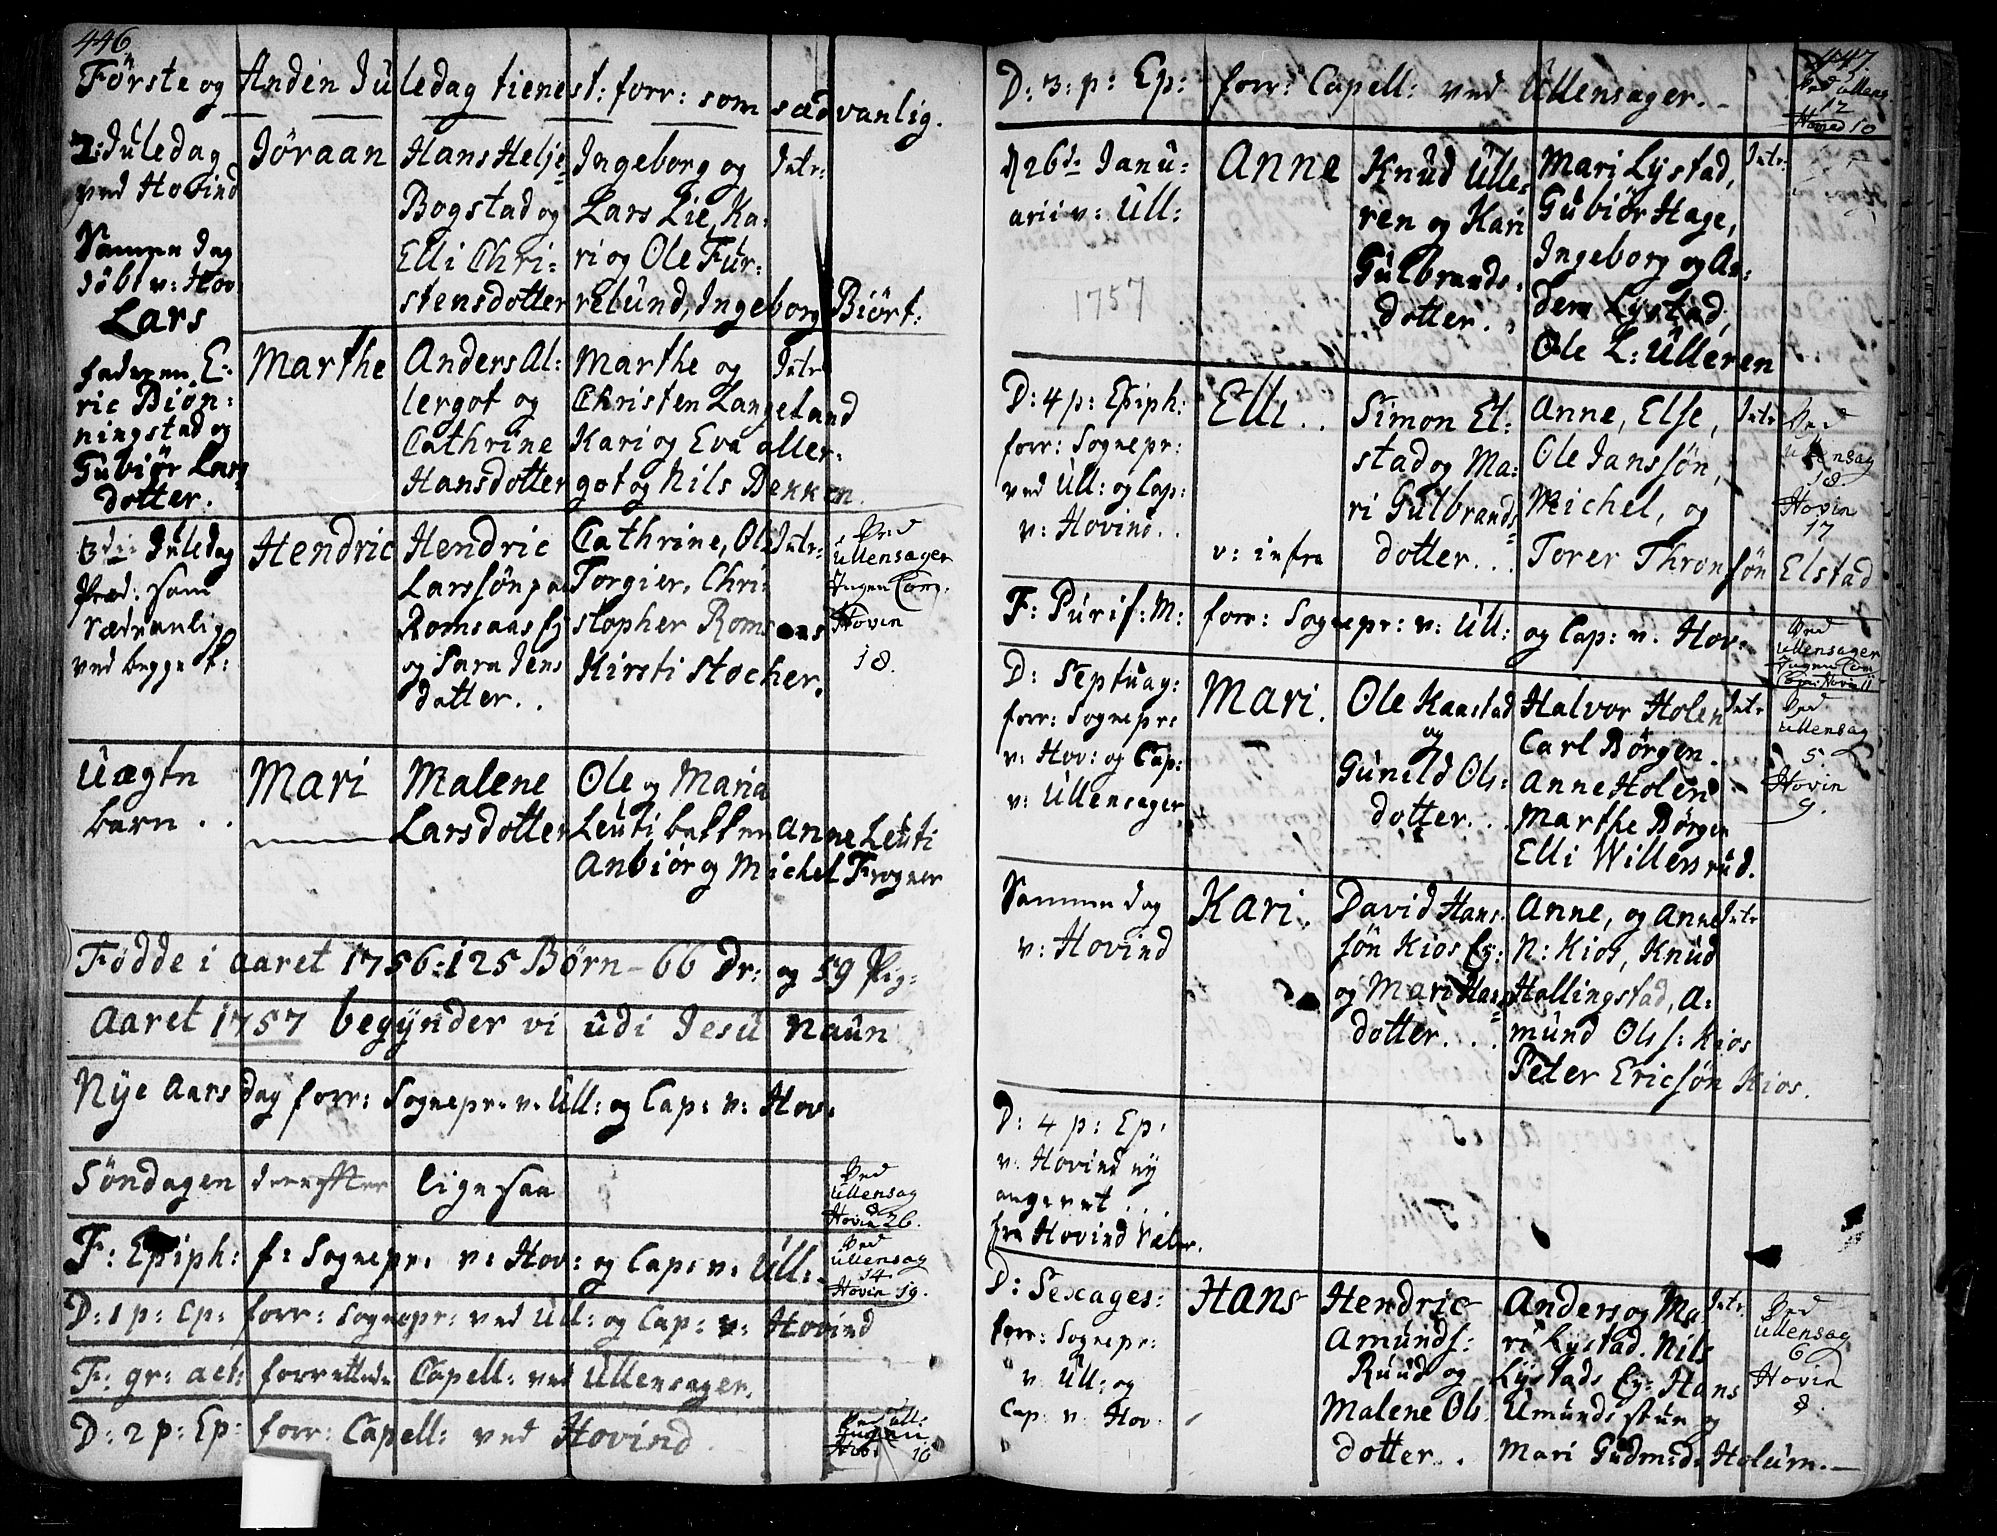 446.
Förste og Anden Juledag tienest: forr: som sædvanlig.
2: Juledag
ved Hovind
Jöraan
Hans Helje
Bogstad og
Elli Chri-
stensdotter
Ingeborg og
Lars Lie, Ka-
ri og Ole Fur-
relund, Ingeborg Biört:
Intr:
Samme dag
döbt v: Hov
Lars
faderen E-
ric Biön-
ningstad og
Gubiör Lars
dotter.
Marthe
Anders Al-
lergot og
Cathrine
Hansdotter
Marthe og
Christen Langeland
Kari og Eva aller-
got og Nils Bekken.
Intr
3die Juledag
Præd: som
sædvanlig
ved begge K:
Hendric
Hendric
Larssön paa
Romsaas Ey
og Sara Jens
dotter. .
Cathrine, Ole
Torgier, Chri-
stopher Romsaas
Kirsti Stocher.
Intr:
Ved
Ullensager
Ingen Com.
Hovin
18.
Uægte
barn . .
Mari
Malene
Larsdotter
Ole og Maria
Leuti bakken Anne Leuti
Anbiör og Michel Frogner
Födde i aaret 1756: 125 Börn - 66 Dr: og 59 Pig:
Aaret 1757 begÿnder vi udi Jesu Naun
Nÿe Aars dag forr: Sognepr: v: Ull: og Cap: v: Hov:
Söndagen derefter ligesaa
Ved
Ullensag
Hovin 26.
F: Epiph: f: Sognepr: v: Hov: og Cap: v: Ull:
Ved
Ullensag
14.
Hovin 19.
D: 1 p: Ep: forr: Sognepr: ved Ull: og Cap: v: Hovind
F: gr: act: forrettede Capell: ved Ullensager.
D: 2 p: Ep: forr: Capell: ved Hovind
Ved Ull:
Ingen
Hov: 16
447.
D: 3: p: Ep: forr: Capell: ved Ullensager. -
Ved Ullens.
12
Hovin 10
d 26de Janu-
arii v: Ull:
1757
Anne
Knud Ulle-
ren og Kari
Gulbrands-
dotter. .
Mari Lÿstad,
Gubiör Hage,
Ingeborg og An-
dera Lÿstad,
Ole L: Ulleren
Intr:
D: 4 p: Epiph:
forr: Sognepr:
ved Ull: og Cap:
v: Hovind. .
Elli . .
v: infra
Simon El-
stad og Ma-
ri Gulbrands-
dotter. . .
Anne, Else,
Ole Janssön,
Michel, og
Torer Thronsön Elstad
Intr
Ved
Ullensag
18.
Hovin
17
F: Purif: M: forr: Sognepr: v: Ull: og Cap: v: Hov:
Ved
Ullensager
Ingen Com
D: Septuag:
forr: Sognepr:
v: Hov: og Cap:
v: Ullensager
Mari.
Ole Kaastad
og
Guneld Ols-
dotter. . .
Halvor Holen
Carl Börgen.
Anne Holen
Marthe Börgen
Elli Willersrud.
Intr
Ved
Ullensag
5.
Hovin
9.
Sammen dag
v: Hovind
Kari.
David Hans-
sön Kios Ey:
og Mari Hans-
dotter. . .
Anne, og Anne
N: Kios, Knud
Hallingstad, A-
mund Ols: Kios
Peter Ericsön Kios.
Intr
D: 4 p: Ep:
v: Hovind nÿ
angivet . . .
fra Hovind
D: Sexages:
forr: Sognepr:
v: Ull: og
Cap: v: Hov:
Hans
Hendric
Amunds:
Ruud og
Malene Ols
dotter. . .
Anders og Ma
ri Lÿstad. Nils
Lÿstads Ey: Hans
Amundsstun og
Mari Gudmds Holum. -
Intr
Ved
Ullensag
6
Hovin
8.